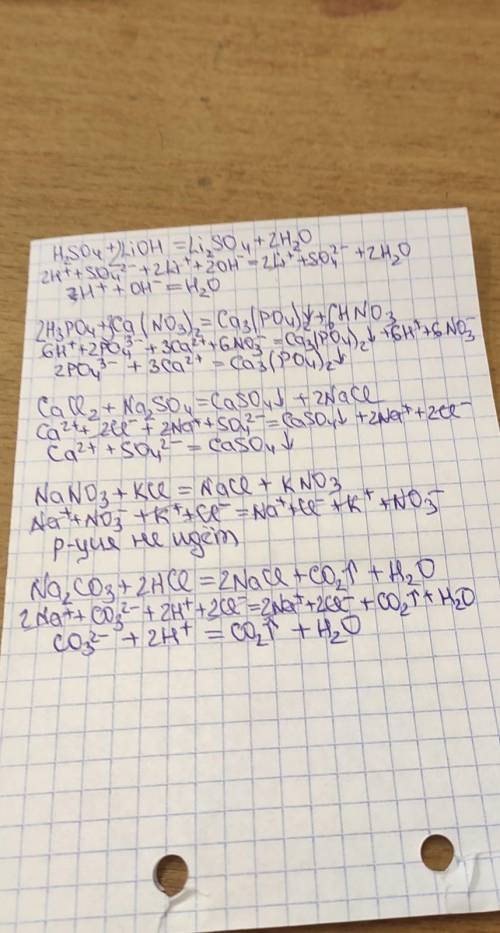 H₂SO₄ + 2LiOH = Li₂SO₄ + 2H₂O
2H⁺ + SO₄²⁻ + 2Li⁺ + 2OH⁻ = 2Li⁺ + SO₄²⁻ + 2H₂O
H⁺ + OH⁻ = H₂O
2H₃PO₄ + 3Ca(NO₃)₂ = Ca₃(PO₄)₂↓ + 6HNO₃
6H⁺ + 2PO₄³⁻ + 3Ca²⁺ + 6NO₃⁻ = Ca₃(PO₄)₂↓ + 6H⁺ + 6NO₃⁻
2PO₄³⁻ + 3Ca²⁺ = Ca₃(PO₄)₂↓
CaCl₂ + Na₂SO₄ = CaSO₄↓ + 2NaCl
Ca²⁺ + 2Cl⁻ + 2Na⁺ + SO₄²⁻ = CaSO₄↓ + 2Na⁺ + 2Cl⁻
Ca²⁺ + SO₄²⁻ = CaSO₄↓
NaNO₃ + KCl = NaCl + KNO₃
Na⁺ + NO₃⁻ + K⁺ + Cl⁻ = Na⁺ + Cl⁻ + K⁺ + NO₃⁻
р-ция не идет
Na₂CO₃ + 2HCl = 2NaCl + CO₂↑ + H₂O
2Na⁺ + CO₃²⁻ + 2H⁺ + 2Cl⁻ = 2Na⁺ + 2Cl⁻ + CO₂↑ + H₂O
CO₃²⁻ + 2H⁺ = CO₂↑ + H₂O